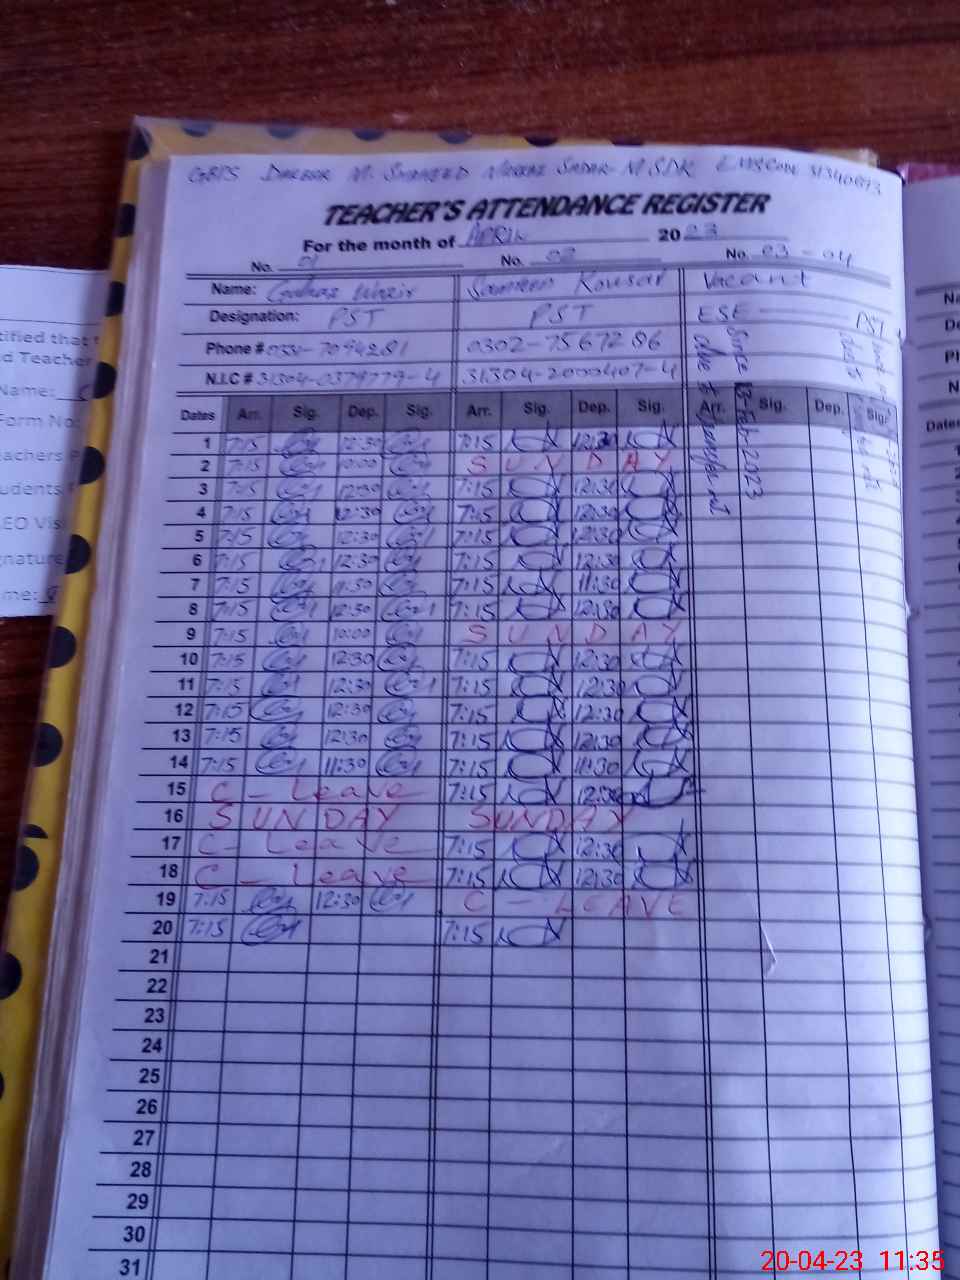 GBPS DARBAR M. SHAHEED MARKAZ SADAR M.S.D.K EMISCODE 31340073
TEACHER'S ATTENDANCE REGISTER
For the month of APRIL 2023
No. 01 No. 02 No. 03 - 04
Name: Samreen Kousar Vacant
Designation: PST PST ESE PST
Phone # 0302-7567286
N.I.C # 31304-0379779-4 31304-2000407-4
Since 13 Feb 2023
due to
Dates Arr. Sig. Dep. Sig. Arr. Sig. Dep. Sig. Arr. Sig. Dep. Sig.
1 7:15 12:30 7:15 12:30
2 7:15 10:00 SUNDAY
3 7:15 12:30 7:15 12:30
4 7:15 12:30 7:15 12:30
5 7:15 12:30 7:15 12:30
6 7:15 12:30 7:15 12:30
7 7:15 11:30 7:15 11:30
8 7:15 12:30 7:15 12:30
9 7:15 10:00 SUNDAY
10 7:15 12:30 7:15 12:30
11 7:15 12:30 7:15 12:30
12 7:15 12:30 7:15 12:30
13 7:15 12:30 7:15 12:30
14 7:15 11:30 7:15 11:30
15 C - Leave 7:15 12:30
16 SUNDAY SUNDAY
17 C - Leave 7:15 12:30
18 C - Leave 7:15 12:30
19 7:15 12:30 C - LEAVE
20 7:15 7:15
21
22
23
24
25
26
27
28
29
30
31
20-04-23 11:35